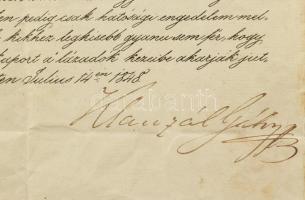 ten pedig csak hatósági engedelem mel-
kekhez legkisebb gyanu sem fér, hogy
aport a lázadók kezeibe akarják jut-
ten Julius 14én 1848
Klauzál Gábor
darabanth